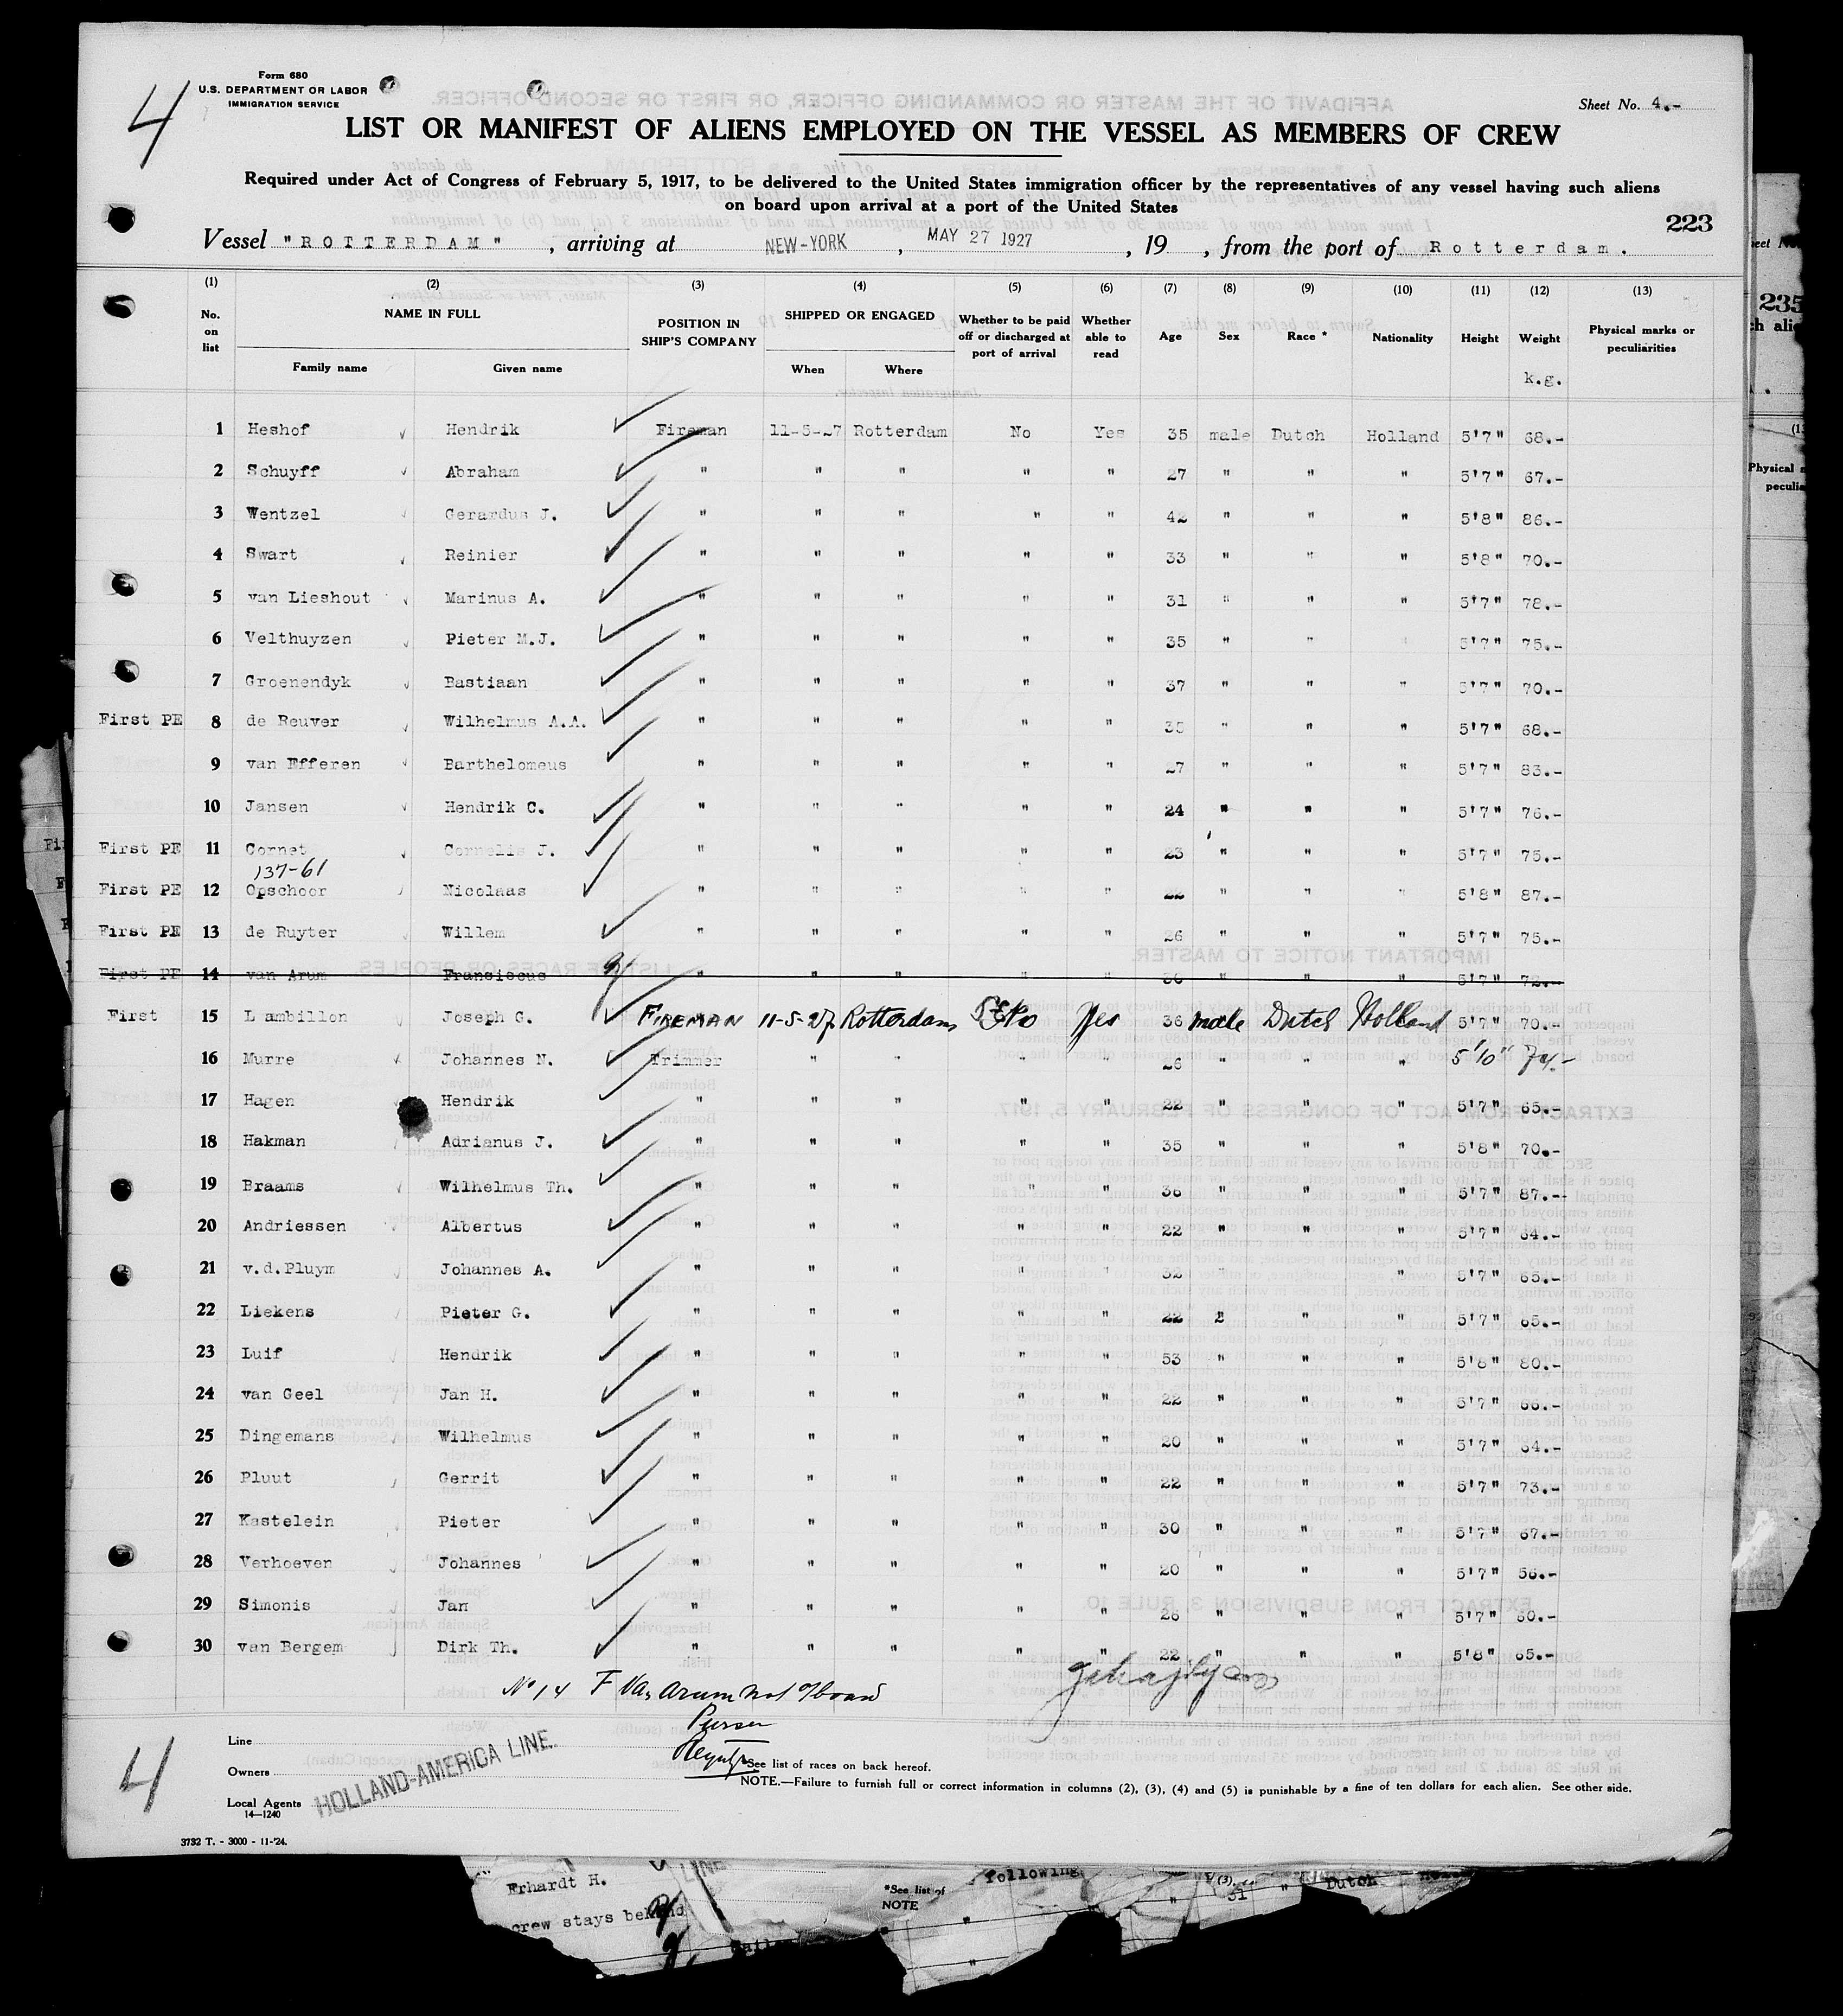 4
Form 680
U.S. DEPARTMENT OR LABOR
IMMIGRATION SERVICE
Sheet No. 4.-
LIST OR MANIFEST OF ALIENS EMPLOYED ON THE VESSEL AS MEMBERS OF CREW
Required under Act of Congress of February 5, 1917, to be delivered to the United States immigration officer by the representatives of any vessel having such aliens
on board upon arrival at a port of the United States
223
Vessel "ROTTERDAM", arriving at NEW-YORK, MAY 27 1927, 19 , from the port of Rotterdam.
(1) (2) (3) (4) (5) (6) (7) (8) (9) (10) (11) (12) (13)
No. on list NAME IN FULL Family name Given name POSITION IN SHIP'S COMPANY SHIPPED OR ENGAGED When Where Whether to be paid off or discharged at port of arrival Whether able to read Age Sex Race * Nationality Height Weight k.g. Physical marks or peculiarities
1 Heshof Hendrik Fireman 11-5-27 Rotterdam No Yes 35 male Dutch Holland 5'7" 68.-
2 Schuyff Abraham " " " " " 27 " " " 5'7" 67.-
3 Wentzel Gerardus J. " " " " " 42 " " " 5'8" 86.-
4 Swart Reinier " " " " " 33 " " " 5'8" 70.-
5 van Lieshout Marinus A. " " " " " 31 " " " 5'7" 78.-
6 Velthuyzen Pieter M.J. " " " " " 35 " " " 5'7" 75.-
7 Groenendyk Bastiaan " " " " " 37 " " " 5'7" 70.-
First PE 8 de Reuver Wilhelmus A.A. " " " " " 35 " " " 5'7" 68.-
9 van Efferen Barthelomeus " " " " " 27 " " " 5'7" 83.-
10 Jansen Hendrik C. " " " " " 24 " " " 5'7" 76.-
First PE 11 Cornet Cornelis J. " " " " " 23 " " " 5'7" 75.-
137-61
First PE 12 Opschoor Nicolaas " " " " " 22 " " " 5'8" 87.-
First PE 13 de Ruyter Willem " " " " " 26 " " " 5'7" 75.-
First PE 14 van Arum Fransiscus " " " " " 30 " " " 5'7" 72.-
First 15 Lambillon Joseph G. FIREMAN 11-5-27 Rotterdam No Yes 36 male Dutch Holland 5'7" 70.-
16 Murre Johannes N. Trimmer " " " " 26 " " " 5'10" 74.-
17 Hagen Hendrik " " " " " 22 " " " 5'7" 65.-
18 Hakman Adrianus J. " " " " " 35 " " " 5'8" 70.-
19 Braams Wilhelmus Th. " " " " " 36 " " " 5'7" 87.-
20 Andriessen Albertus " " " " " 22 " " " 5'7" 64.-
21 v.d.Pluym Johannes A. " " " " " 32 " " " 5'7" 65.-
22 Liekens Pieter G. " " " " " 22 " " " 5'7" 65.-
23 Luif Hendrik " " " " " 53 " " " 5'8" 80.-
24 van Geel Jan H. " " " " " 22 " " " 5'7" 66.-
25 Dingemans Wilhelmus " " " " " 20 " " " 5'7" 64.-
26 Pluut Gerrit " " " " " 22 " " " 5'7" 73.-
27 Kastelein Pieter " " " " " 30 " " " 5'7" 67.-
28 Verhoeven Johannes " " " " " 20 " " " 5'7" 56.-
29 Simonis Jan " " " " " 26 " " " 5'7" 60.-
30 van Bergem Dirk Th. " " " " " 22 " " " 5'8" 65.-
No 14 F Van Arum not of board
Purser
4
Line
Owners
Local Agents
HOLLAND-AMERICA LINE.
14—1240
*See list of races on back hereof.
NOTE.—Failure to furnish full or correct information in columns (2), (3), (4) and (5) is punishable by a fine of ten dollars for each alien. See other side.
3732 T. - 3000 - 11-'24.
235
Physical
Erhardt H.
crew stays behind
*See list of
NOTE
following
(3),
31 " Dutch